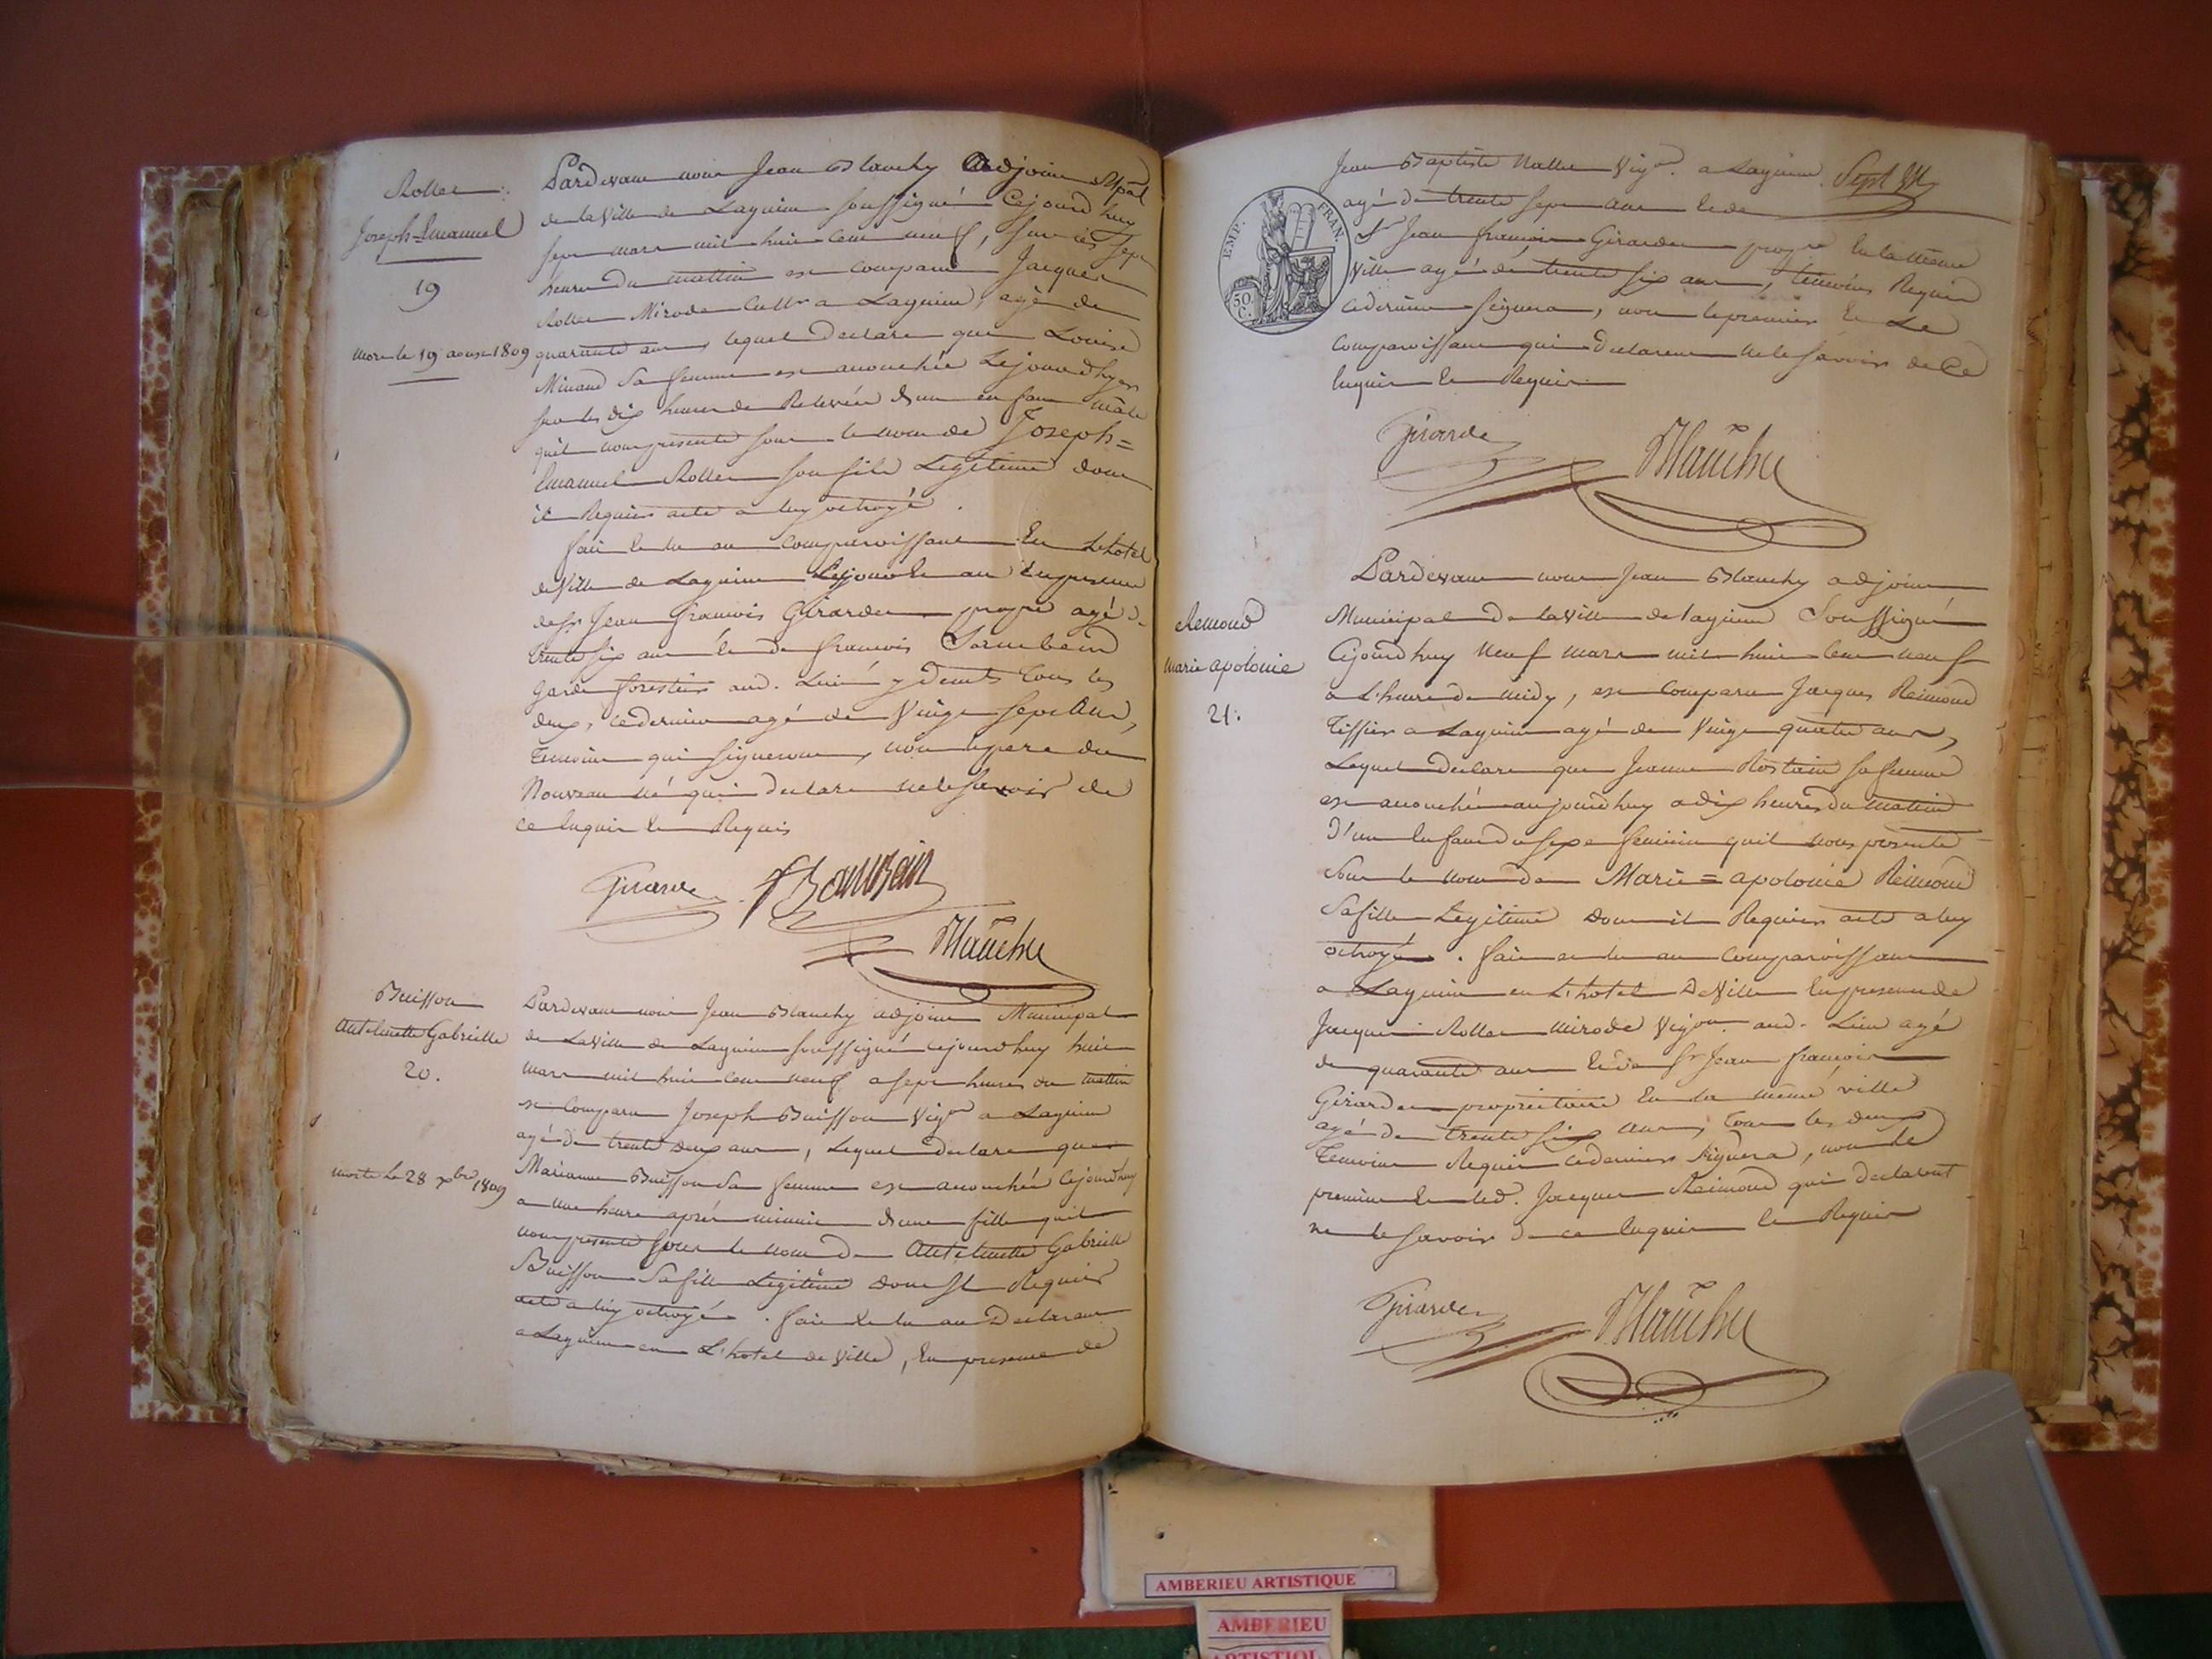 Rollet
Joseph-Emanuel
19
mort le 19 aoust 1809
Pardevant nous Jean Blanchy adjoint Mpal
de la Ville de Lagnieu soussigné Cejourdhuy
sept mars mil huit cent neuf, sur les sept
heures du mattin est comparu Jacques
Rollet Mirode Cultr a Lagnieu, agé de
quarante ans, lequel declare que Louise
Minand sa femme est accouchée Lejourdhyer
sur les dix heures de Relevée d'un enfant mâle
quil nous presente sous le nom de Joseph=
Emanuel Rollet son fils Legitime dont
il Requier acte a luy octroyé.
fait et lu au comparoissant En L'hotel
de Ville de Lagnieu Lesjour et an En presence
de Sr Jean françois Girardet propre agé de
trente six ans et de françois
Garde forestier aud. Lieu y demts Tous les
deux, cedernier agé de Vingt sept ans,
Temoins qui signeront, non le pere du
Nouveau né qui declare ne le savoir de
ce Enquis et Requis
Girardet
Blanchy
Buisson
Anthelmette Gabrielle
20.
morte le 28 xbre 1809
Pardevant nous Jean Blanchy adjoint Municipal
de La Ville de Lagnieu soussigné cejourdhuy huit
mars mil huit cent neuf a sept heures du mattin
est comparu Joseph Buisson Vigon a Lagnieu
agé de trente deux ans, Lequel declare que
Marianne Buisson sa femme est accouchée Cejourdhuy
a une heure aprés minuit d'une fille quil
nous presente sous le nom de Anthelmette Gabrielle
Buisson sa fille Legitime dont Il Requier
acte a luy octroyé. fait et lu au Declarant
a Lagnieu en L'hotel de Ville, En presence de
Jean Baptiste Vigon a Lagnieu
agé de trente sept ans et de
EMP. FRAN.
50. C.
Sr Jean françois Girardet propre En la même
Ville agé de trente six ans, temoins Requis
cedernier signera, non le premier et Le
Comparoissant qui declarent ne le savoir de Ce
Enquis et Requis
Girardet
Blanchy
Remond
Marie apolonie
21.
Pardevant nous Jean Blanchy adjoint
Municipal de la Ville de lagnieu Soussigné
Cejourdhuy Neuf mars mil huit Cent neuf
a L'heure de midy, est Comparu Jacques Reimond
Tissier a Lagnieu agé de Vingt quatre ans,
Lequel Declare que Jeanne Rostain sa femme
est accouchée aujourdhuy a dix heures du mattin
d'un Enfant du sexe feminin quil nous presente
Sous le nom de Marie=apolonie Reimond
Sa fille Legitime dont il Requier acte a luy
octroyé. fait et lu au Comparoissant
a Lagnieu en L'hotel De Ville En presence de
Jacques Rollet Mirode Vigon aud. Lieu agé
de quarante ans et de Sr Jean françois
Girardet proprietaire En la même ville
agé de trente six ans, tous les deux
Temoins Requis cedernier signera, non le
premier et led. Jacques Reimond qui declarent
ne le savoir de ce Enquis et Requis
Girardet
Blanchy
AMBERIEU ARTISTIQUE
AMBERIEU